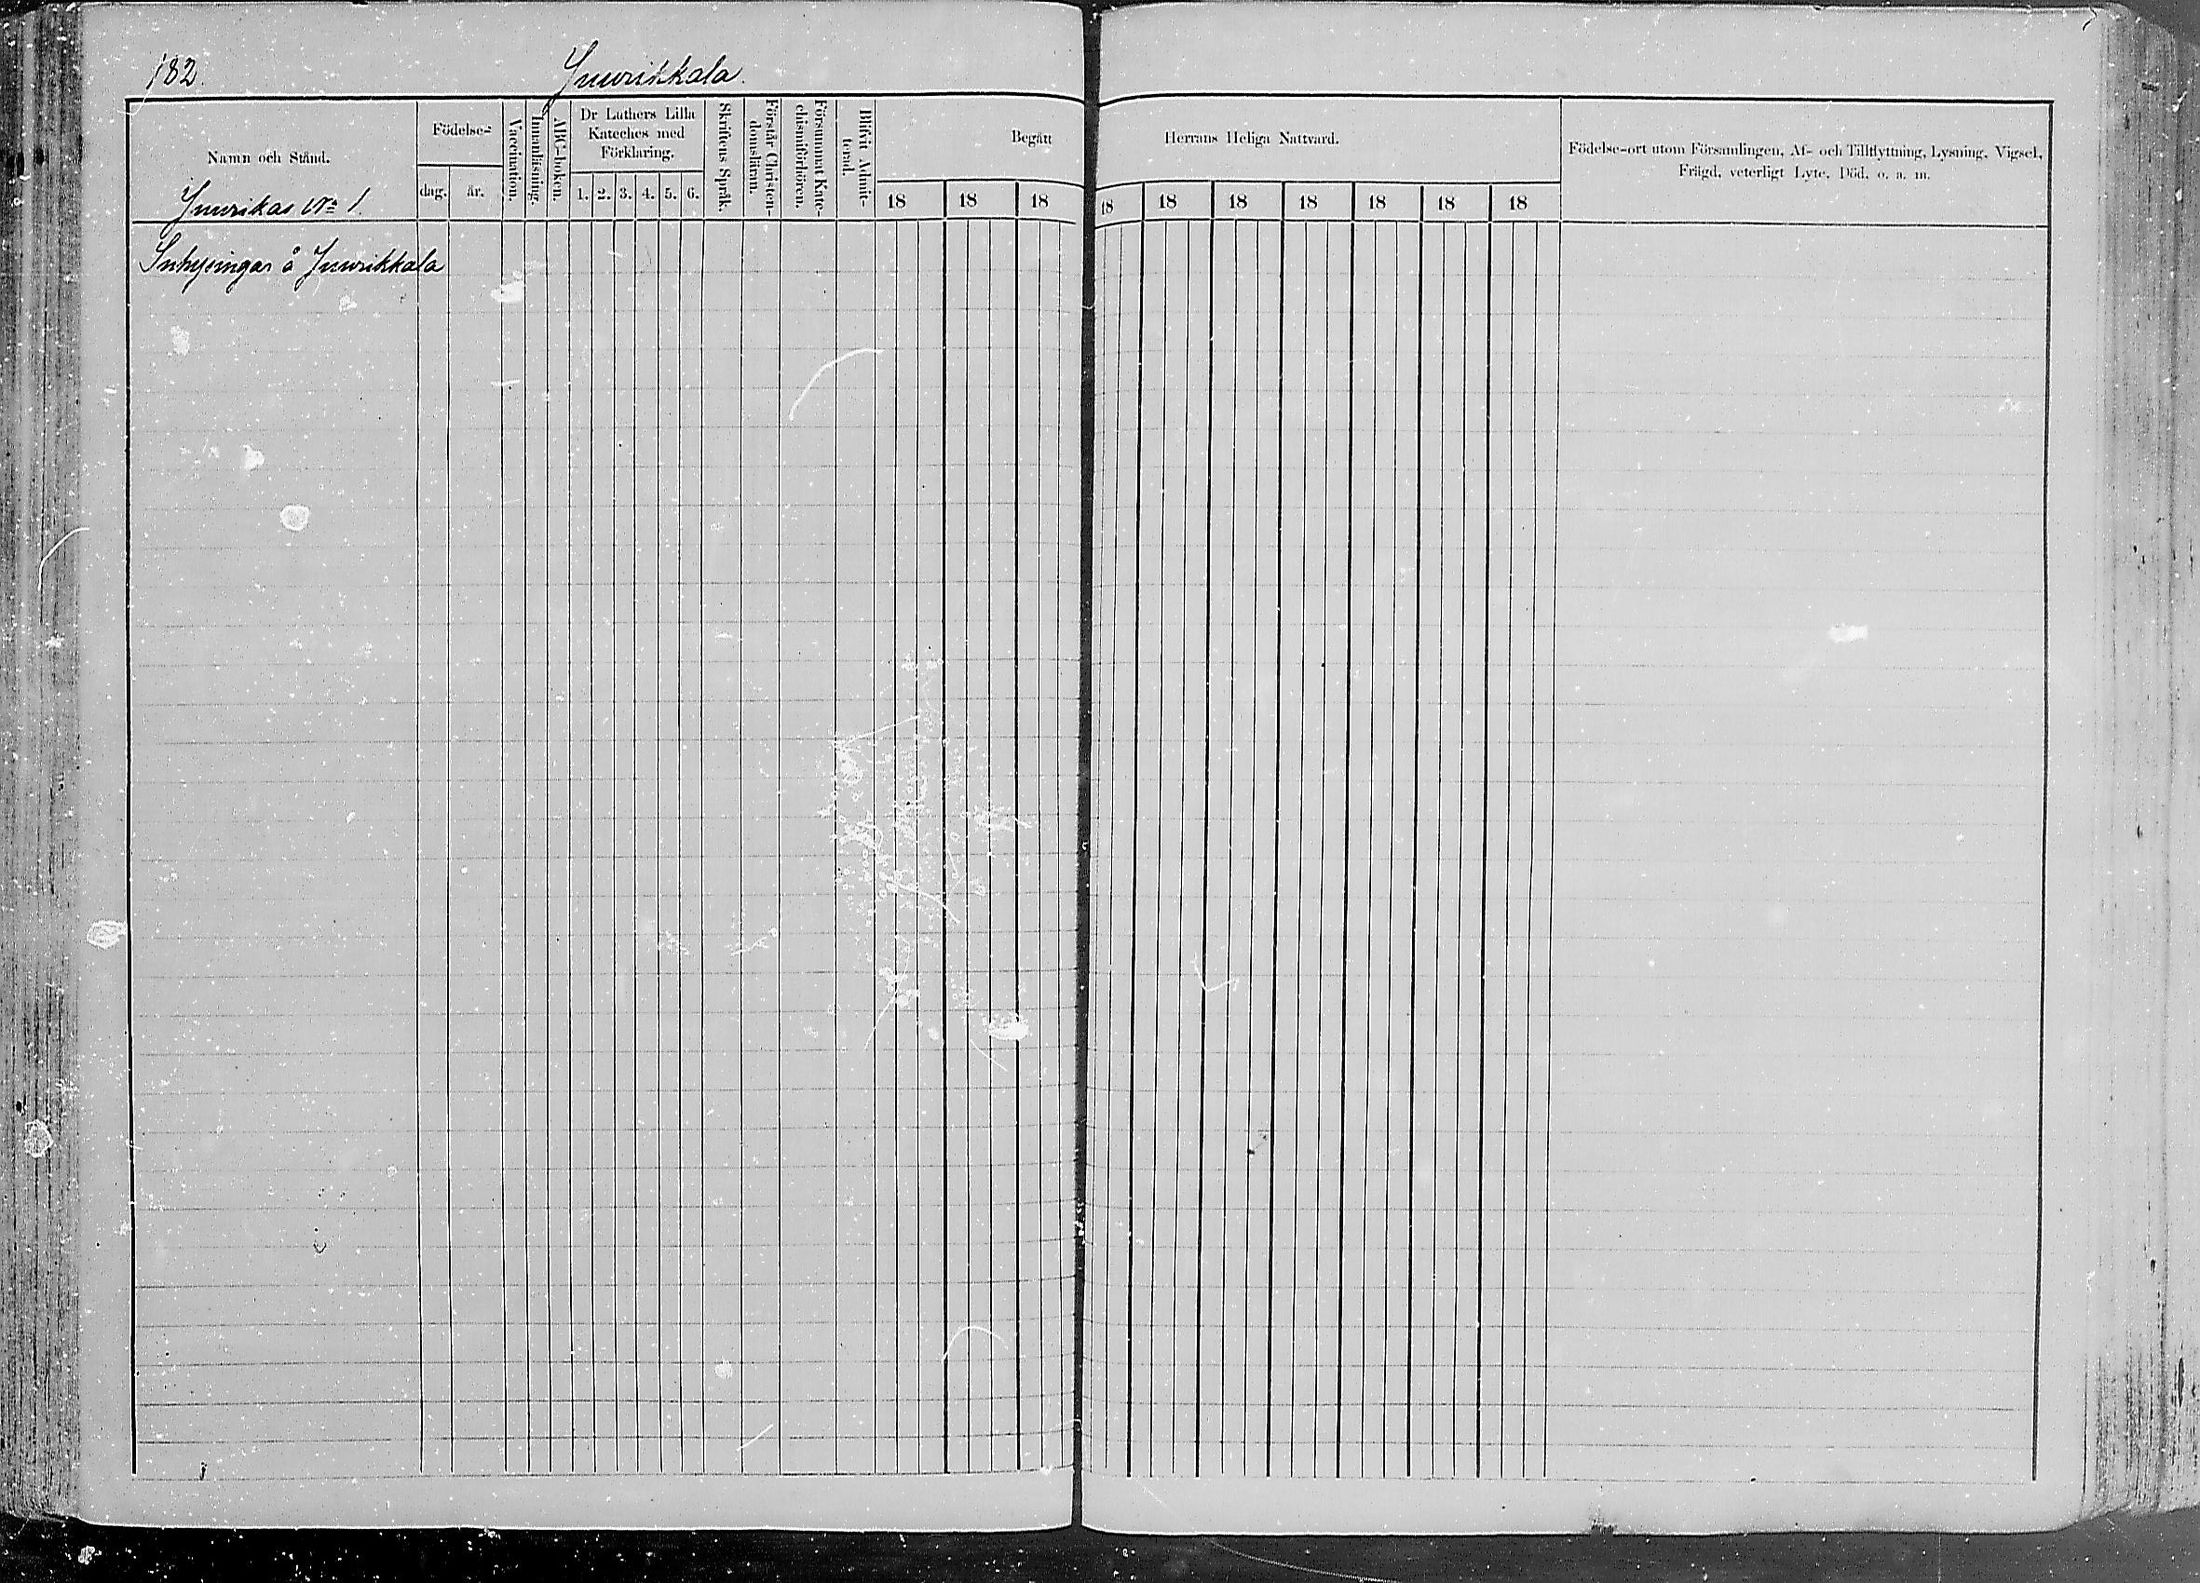 182.
Juurikkala.
Namn och Stånd.
Juurikas No 1.
Födelse-
dag.
år.
Vaccination.
Innanläsning.
ABC-boken.
Dr Luthers Lilla
Kateches med
Förklaring.
1. 2. 3. 4. 5. 6.
Skriftens Språk.
Förstår Christen-
domsläran.
Försummat Kate-
chismiförhören.
Blifvit Admit-
terad.
Begått
18 18 18
Herrans Heliga Nattvard.
18 18 18 18 18 18 18
Födelse-ort utom Församlingen, Af- och Tillflyttning, Lysning, Vigsel,
Frägd, veterligt Lyte, Död, o. a. m.
Inhysingar å Juurikkala